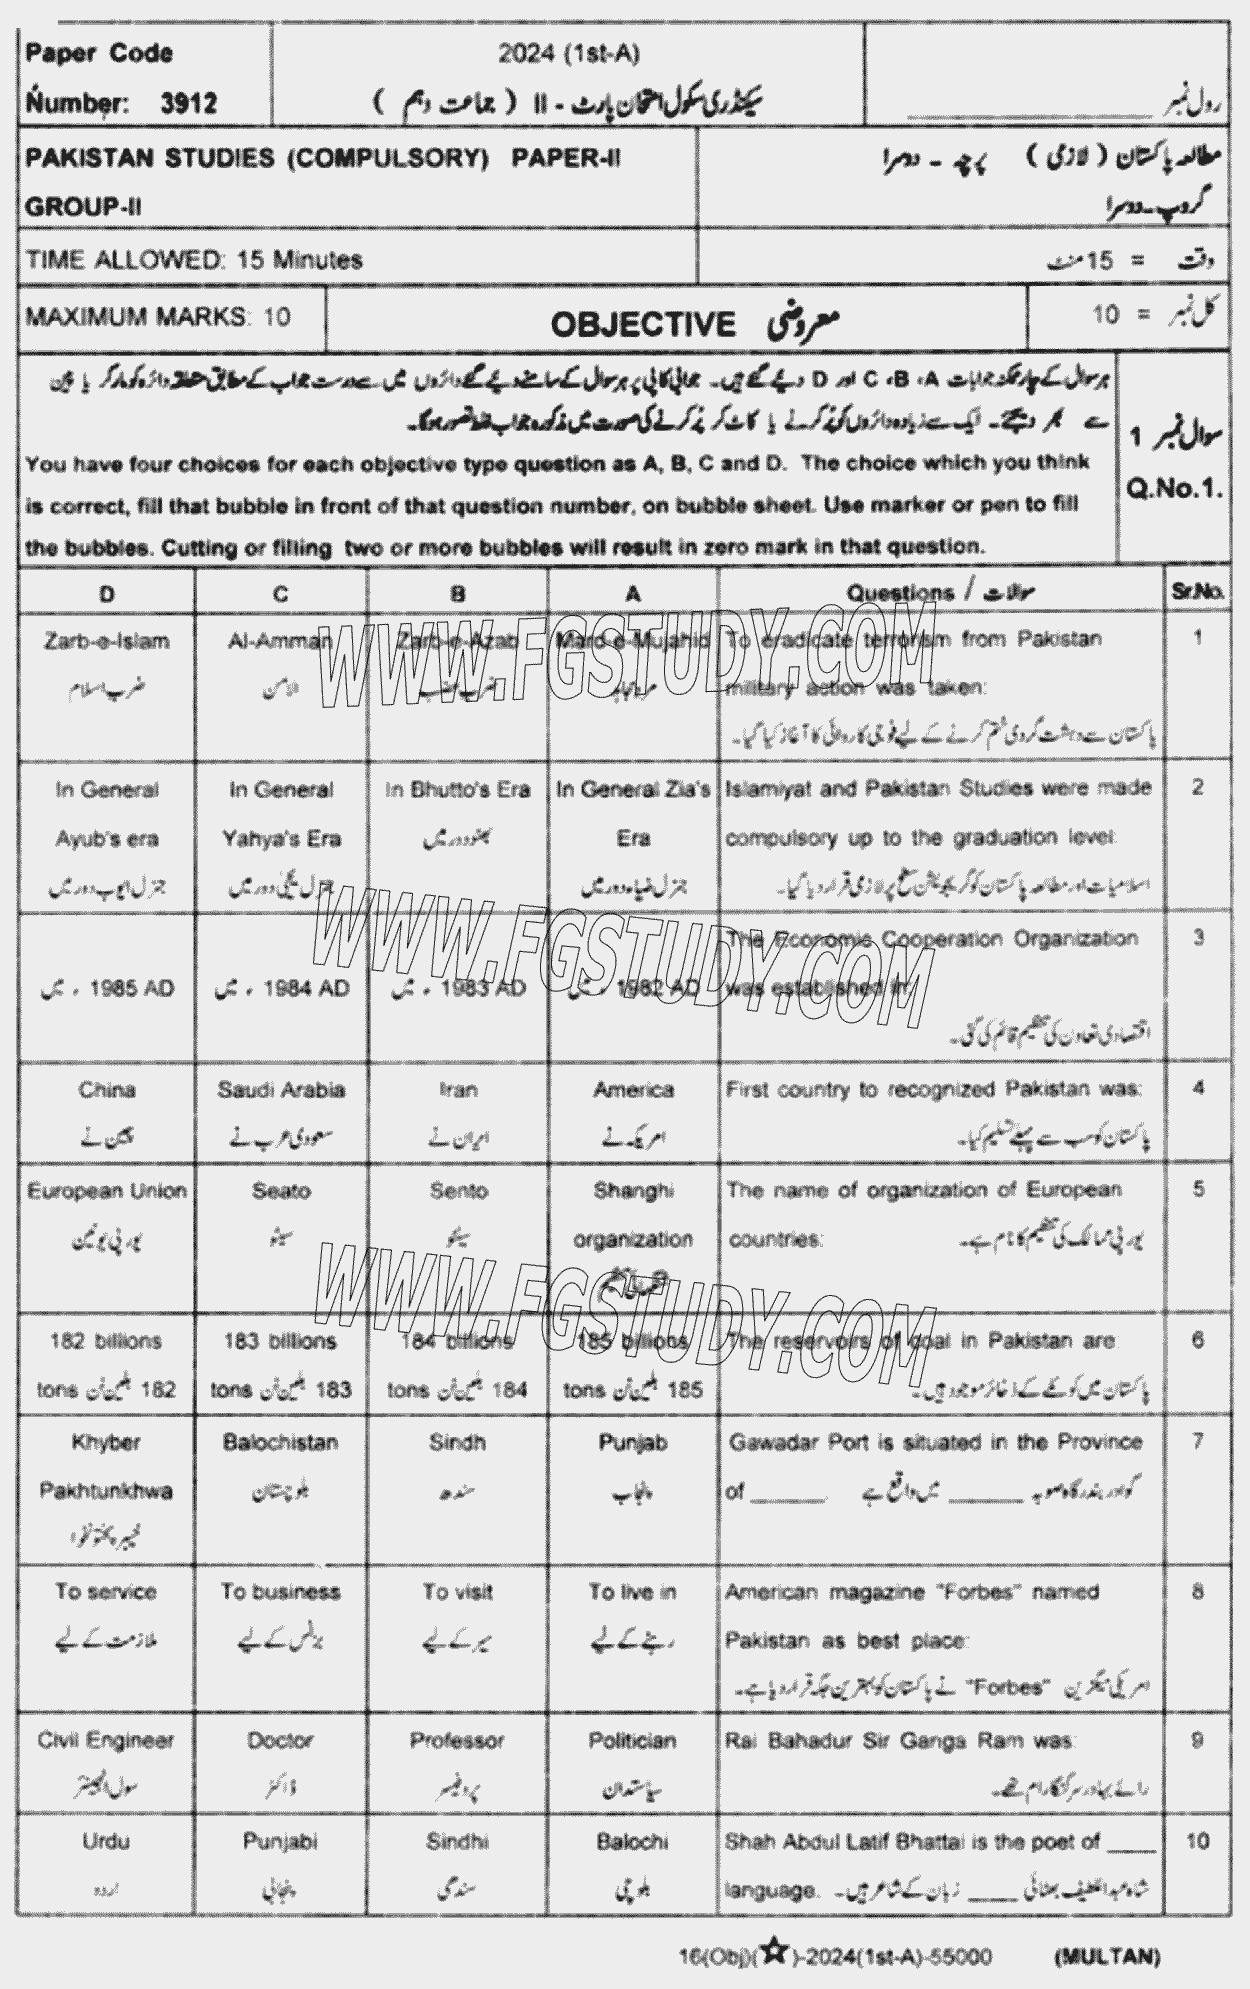 Paper Code
Number: 3912
2024 (1st-A)
سیکنڈری سکول امتحان پارٹ - II ( جماعت دہم )
رول نمبر ____________
PAKISTAN STUDIES (COMPULSORY) PAPER-II
GROUP-II
مطالعہ پاکستان ( لازمی ) پرچہ - دوسرا
گروپ - دوسرا
TIME ALLOWED: 15 Minutes
وقت = 15 منٹ
MAXIMUM MARKS: 10
OBJECTIVE معروضی
کل نمبر = 10
ہر سوال کے چار ممکنہ جوابات A، B، C اور D دیئے گئے ہیں۔ جوابی کاپی پر ہر سوال کے سامنے دیئے گئے دائروں میں سے درست جواب کے مطابق متعلقہ دائرہ کو مارکر یا پین
سے بھر دیجئے۔ ایک سے زیادہ دائروں کو پُر کرنے یا کاٹ کر پُر کرنے کی صورت میں مذکورہ جواب غلط تصور ہوگا۔
You have four choices for each objective type question as A, B, C and D. The choice which you think
is correct, fill that bubble in front of that question number, on bubble sheet. Use marker or pen to fill
the bubbles. Cutting or filling two or more bubbles will result in zero mark in that question.
سوال نمبر 1
Q.No.1.
D C B A Questions / سوالات Sr.No.
Zarb-e-Islam Al-Amman Zarb-e-Azab Mard-e-Mujahid To eradicate terrorism from Pakistan 1
ضرب اسلام الامن ضرب عضب مرد مجاہد military action was taken:
پاکستان سے دہشت گردی ختم کرنے کے لیے فوجی کاروائی کا آغاز کیا گیا۔
In General In General In Bhutto's Era In General Zia's Islamiyat and Pakistan Studies were made 2
Ayub's era Yahya's Era بھٹو دور میں Era compulsory up to the graduation level:
جنرل ایوب دور میں جنرل یحییٰ دور میں جنرل ضیاء دور میں اسلامیات اور مطالعہ پاکستان کو گریجویشن سطح پر لازمی قرار دیا گیا۔
The Economic Cooperation Organization 3
1985 AD ء میں 1984 AD ء میں 1983 AD ء میں 1982 AD ء میں was established in:
اقتصادی تعاون کی تنظیم قائم کی گئی۔
China Saudi Arabia Iran America First country to recognized Pakistan was: 4
چین نے سعودی عرب نے ایران نے امریکہ نے پاکستان کو سب سے پہلے تسلیم کیا۔
European Union Seato Sento Shanghi The name of organization of European 5
یورپی یونین سیٹو سینٹو organization countries: یورپی ممالک کی تنظیم کا نام ہے۔
شنگھائی تنظیم
182 billions 183 billions 184 billions 185 billions The reservoirs of coal in Pakistan are 6
tons 182 بلین ٹن tons 183 بلین ٹن tons 184 بلین ٹن tons 185 بلین ٹن پاکستان میں کوئلے کے ذخائر موجود ہیں۔
Khyber Balochistan Sindh Punjab Gawadar Port is situated in the Province 7
Pakhtunkhwa بلوچستان سندھ پنجاب of ______ گوادر بندرگاہ صوبہ ______ میں واقع ہے
خیبر پختونخوا
To service To business To visit To live in American magazine "Forbes" named 8
ملازمت کے لیے بزنس کے لیے سیر کے لیے رہنے کے لیے Pakistan as best place:
امریکی میگزین "Forbes" نے پاکستان کو بہترین جگہ قرار دیا ہے۔
Civil Engineer Doctor Professor Politician Rai Bahadur Sir Ganga Ram was: 9
سول انجینئر ڈاکٹر پروفیسر سیاستدان رائے بہادر سر گنگا رام تھے۔
Urdu Punjabi Sindhi Balochi Shah Abdul Latif Bhattai is the poet of ____ 10
اردو پنجابی سندھی بلوچی language. شاہ عبداللطیف بھٹائی ____ زبان کے شاعر ہیں۔
16(Obj)(☆)-2024(1st-A)-55000 (MULTAN)
WWW.FGSTUDY.COM
WWW.FGSTUDY.COM
WWW.FGSTUDY.COM